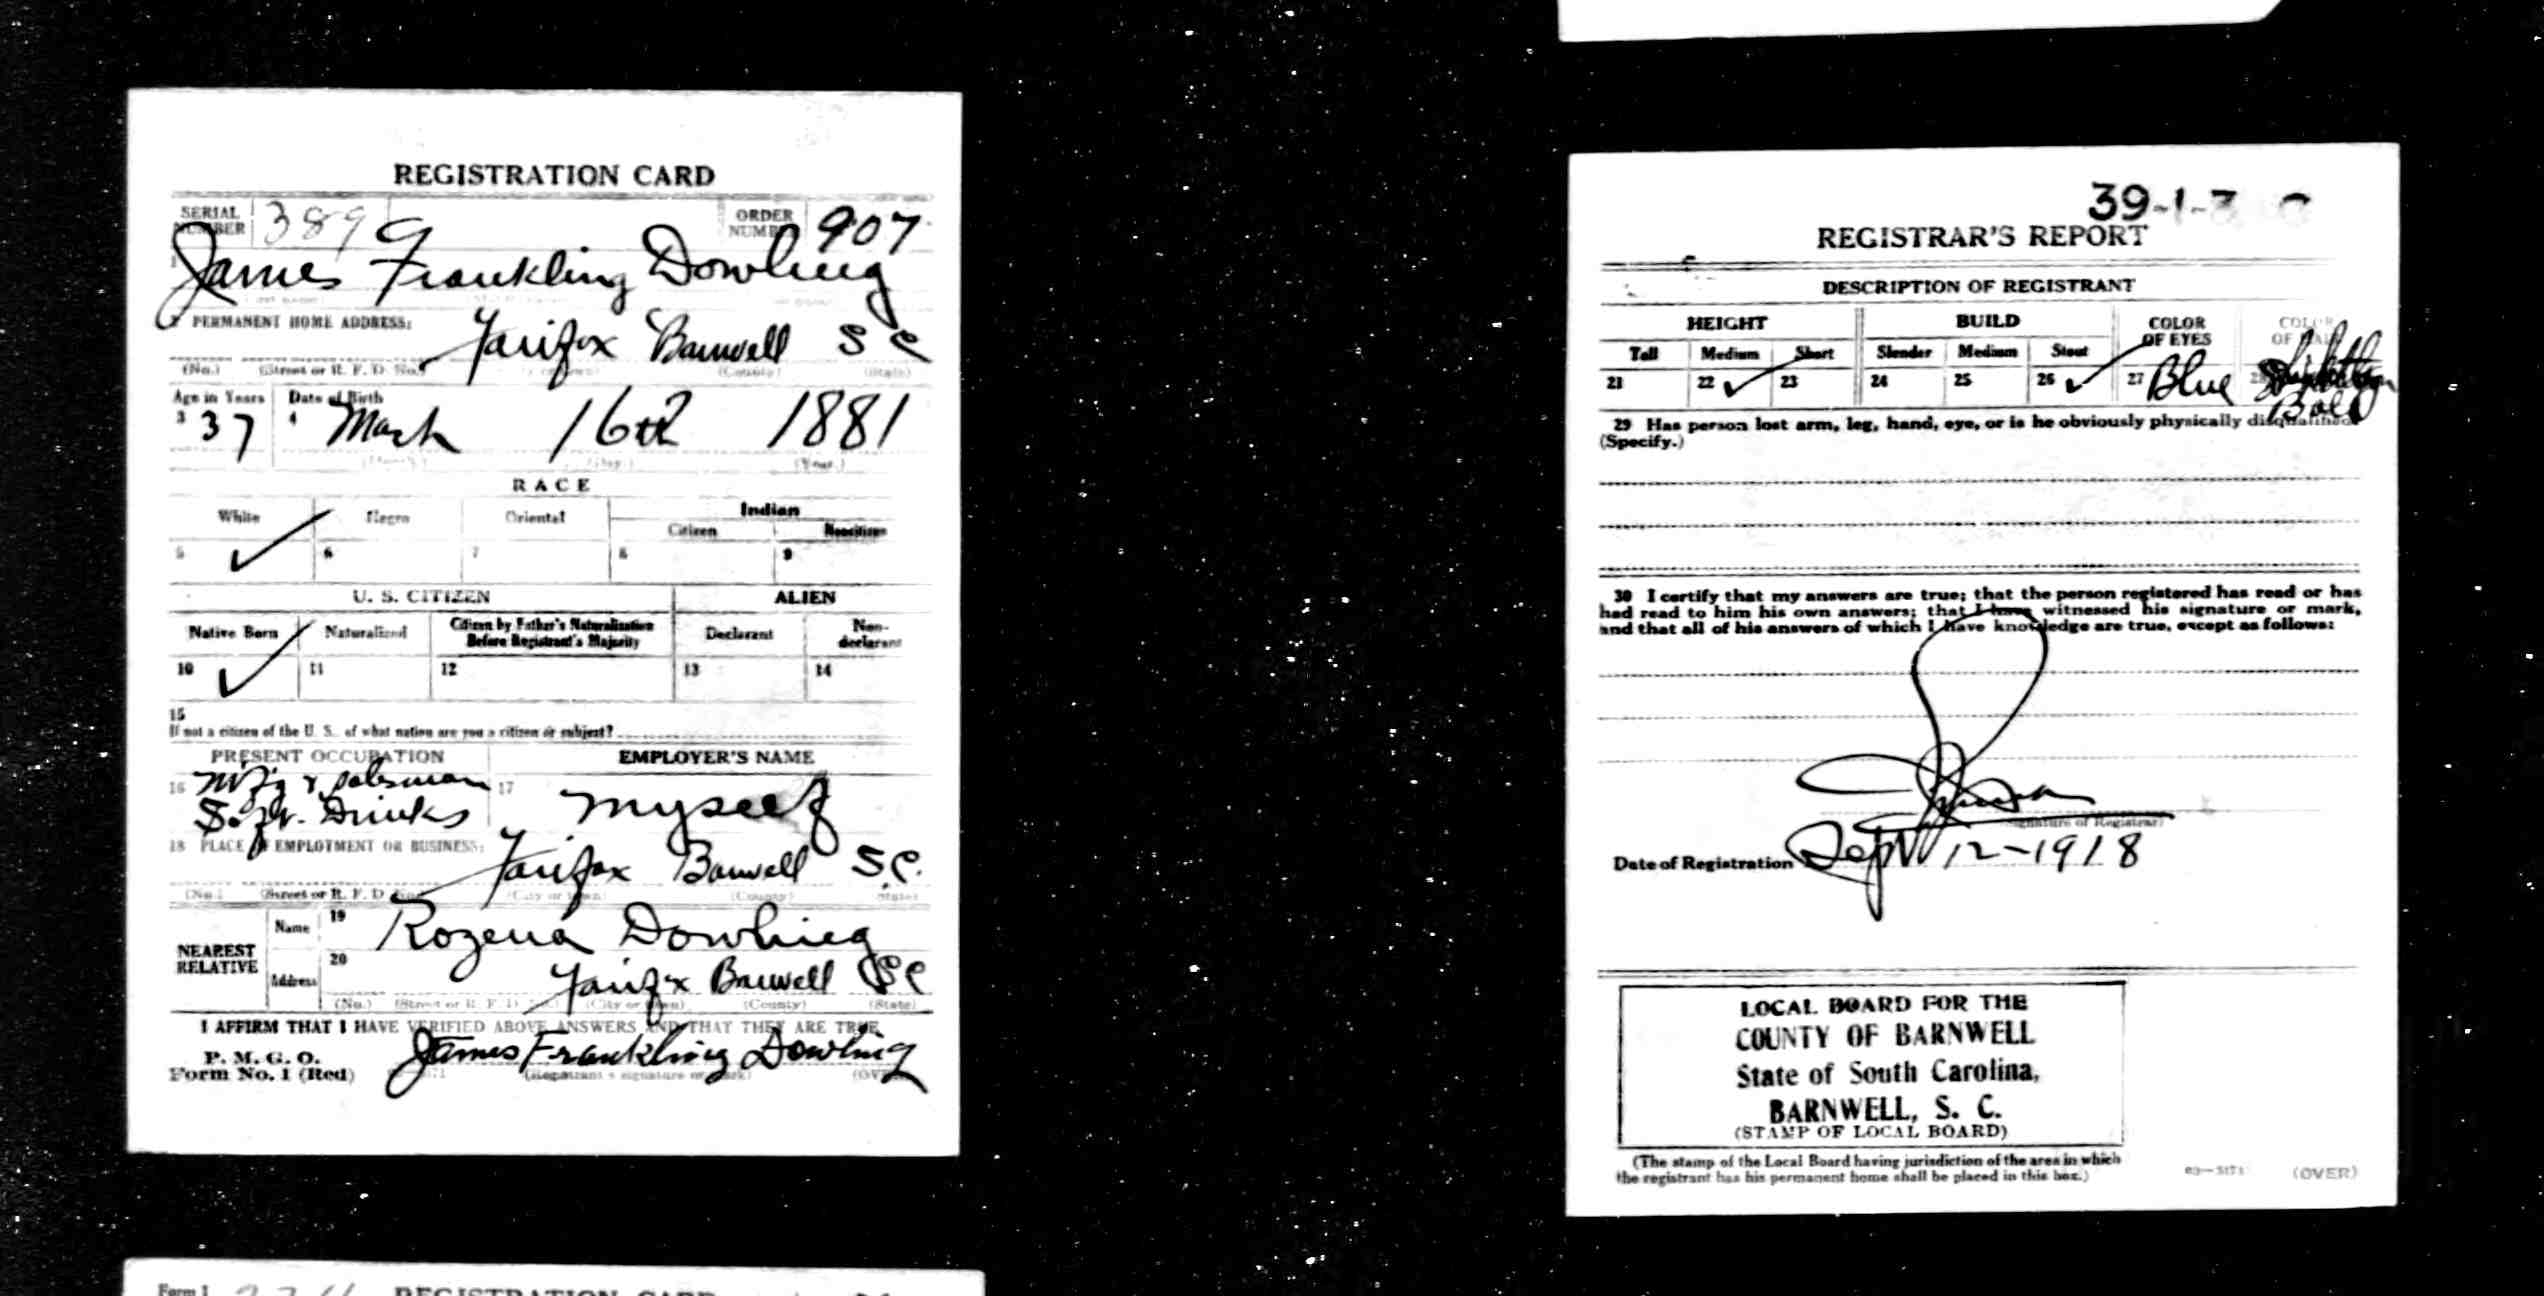 REGISTRATION CARD
SERIAL NUMBER 389 ORDER NUMBER 907
James Frankling Dowling
2 PERMANENT HOME ADDRESS:
Fairifox Barnwell S C
(No.) (Street or R. F. D. No.) (County) (State)
Age in Years Date of Birth
3 37 4 March 16th 1881
(Month.) (Day.) (Year.)
RACE
White Negro Oriental Indian
Citizen Noncitizen
5 ✓ 6 7 8 9
U. S. CITIZEN ALIEN
Native Born Naturalized Citizen by Father's Naturalization Before Registrant's Majority Declarant Non-declarant
10 ✓ 11 12 13 14
15
If not a citizen of the U. S., of what nation are you a citizen or subject?
PRESENT OCCUPATION EMPLOYER'S NAME
16 Mfg & salesman 17 myself
Soft Drinks
18 PLACE OF EMPLOYMENT OR BUSINESS:
Fairifax Barnwell S.C.
(No.) (Street or R. F. D. No.) (City or town) (County) (State)
NEAREST RELATIVE
Name 19 Rozena Dowling
Address 20 Fairifx Barnwell SC
(No.) (Street or R. F. D. No.) (City or town) (County) (State)
I AFFIRM THAT I HAVE VERIFIED ABOVE ANSWERS AND THAT THEY ARE TRUE
P. M. G. O.
Form No. 1 (Red) James Frankling Dowling
(Registrant's signature or mark) (OVER)
Form 1 REGISTRATION CARD
39-1-3 C
REGISTRAR'S REPORT
DESCRIPTION OF REGISTRANT
HEIGHT BUILD COLOR OF EYES COLOR OF HAIR
Tall Medium Short Slender Medium Stout
21 22 ✓ 23 24 25 26 ✓ 27 Blue 28
Bald
29 Has person lost arm, leg, hand, eye, or is he obviously physically disqualified?
(Specify.)
30 I certify that my answers are true; that the person registered has read or has
had read to him his own answers; that I have witnessed his signature or mark,
and that all of his answers of which I have knowledge are true, except as follows:
(Signature of Registrar)
Date of Registration Sept 12-1918
LOCAL BOARD FOR THE
COUNTY OF BARNWELL
State of South Carolina,
BARNWELL, S. C.
(STAMP OF LOCAL BOARD)
(The stamp of the Local Board having jurisdiction of the area in which
the registrant has his permanent home shall be placed in this box.)
03—5171 (OVER)